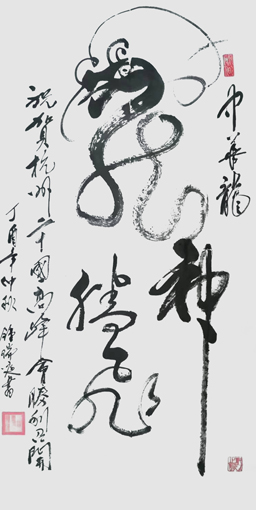 中華龍
神
龍騰飛
祝賀杭州二十國高峰會勝利召開
丁酉年仲秋 書